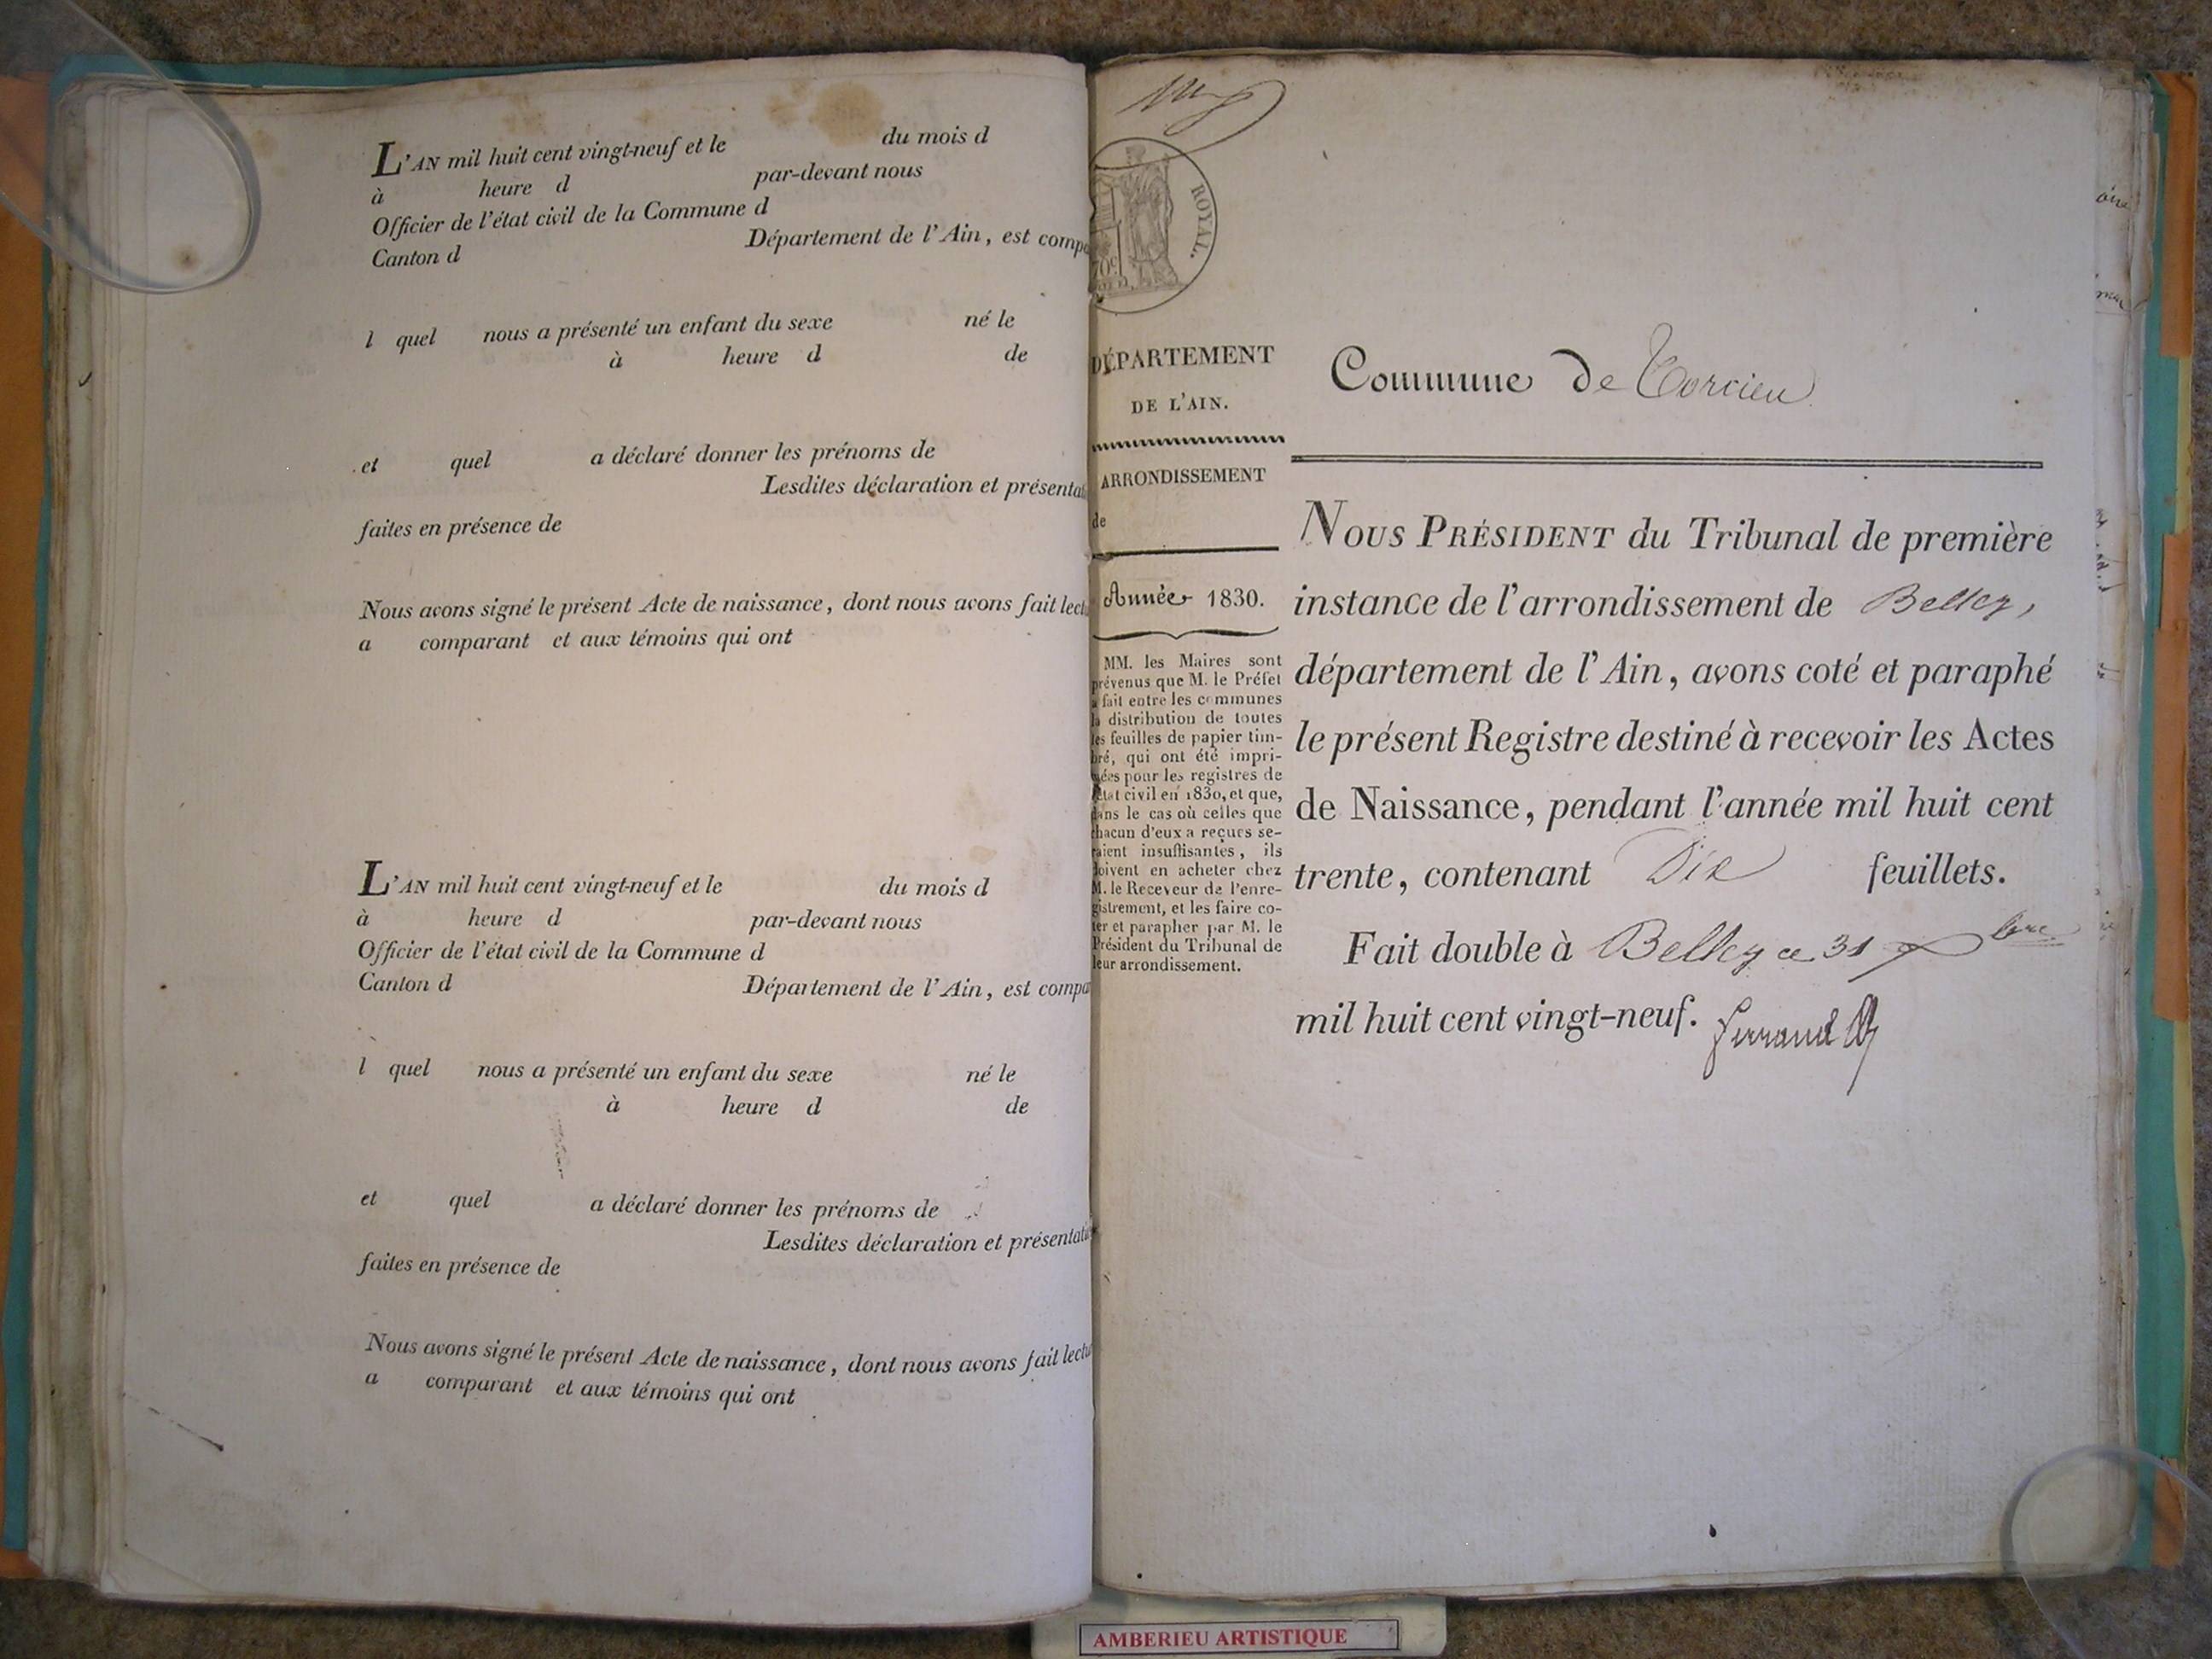 L'AN mil huit cent vingt-neuf et le du mois d
à heure d par-devant nous
Officier de l'état civil de la Commune d
Canton d Département de l'Ain, est compa
l quel nous a présenté un enfant du sexe né le
à heure d de
et quel a déclaré donner les prénoms de
Lesdites déclaration et présentat
faites en présence de
Nous avons signé le présent Acte de naissance, dont nous avons fait lect
a comparant et aux témoins qui ont
L'AN mil huit cent vingt-neuf et le du mois d
à heure d par-devant nous
Officier de l'état civil de la Commune d
Canton d Département de l'Ain, est compa
l quel nous a présenté un enfant du sexe né le
à heure d de
et quel a déclaré donner les prénoms de
Lesdites déclaration et présentati
faites en présence de
Nous avons signé le présent Acte de naissance, dont nous avons fait lectu
a comparant et aux témoins qui ont
ROYAL.
DÉPARTEMENT
DE L'AIN.
ARRONDISSEMENT
de
Année 1830.
MM. les Maires sont
prévenus que M. le Préfet
a fait entre les communes
la distribution de toutes
les feuilles de papier tim-
bré, qui ont été impri-
mées pour les registres de
état civil en 1830, et que,
dans le cas où celles que
chacun d'eux a reçues se-
raient insuffisantes, ils
doivent en acheter chez
M. le Receveur de l'enre-
gistrement, et les faire co-
ter et parapher par M. le
Président du Tribunal de
leur arrondissement.
Commune de Torcieu
NOUS PRÉSIDENT du Tribunal de première
instance de l'arrondissement de Belley,
département de l'Ain, avons coté et paraphé
le présent Registre destiné à recevoir les Actes
de Naissance, pendant l'année mil huit cent
trente, contenant Dix feuillets.
Fait double à Belley ce 31 Xbre
mil huit cent vingt-neuf. Ferrand
AMBERIEU ARTISTIQUE